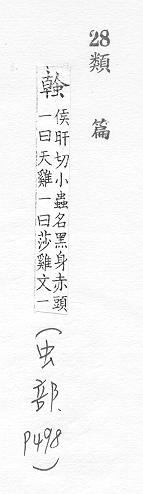 28 類篇
螒
侯肝切小蟲名黑身赤頭
一曰天雞一曰莎雞文一
(虫部、P498)